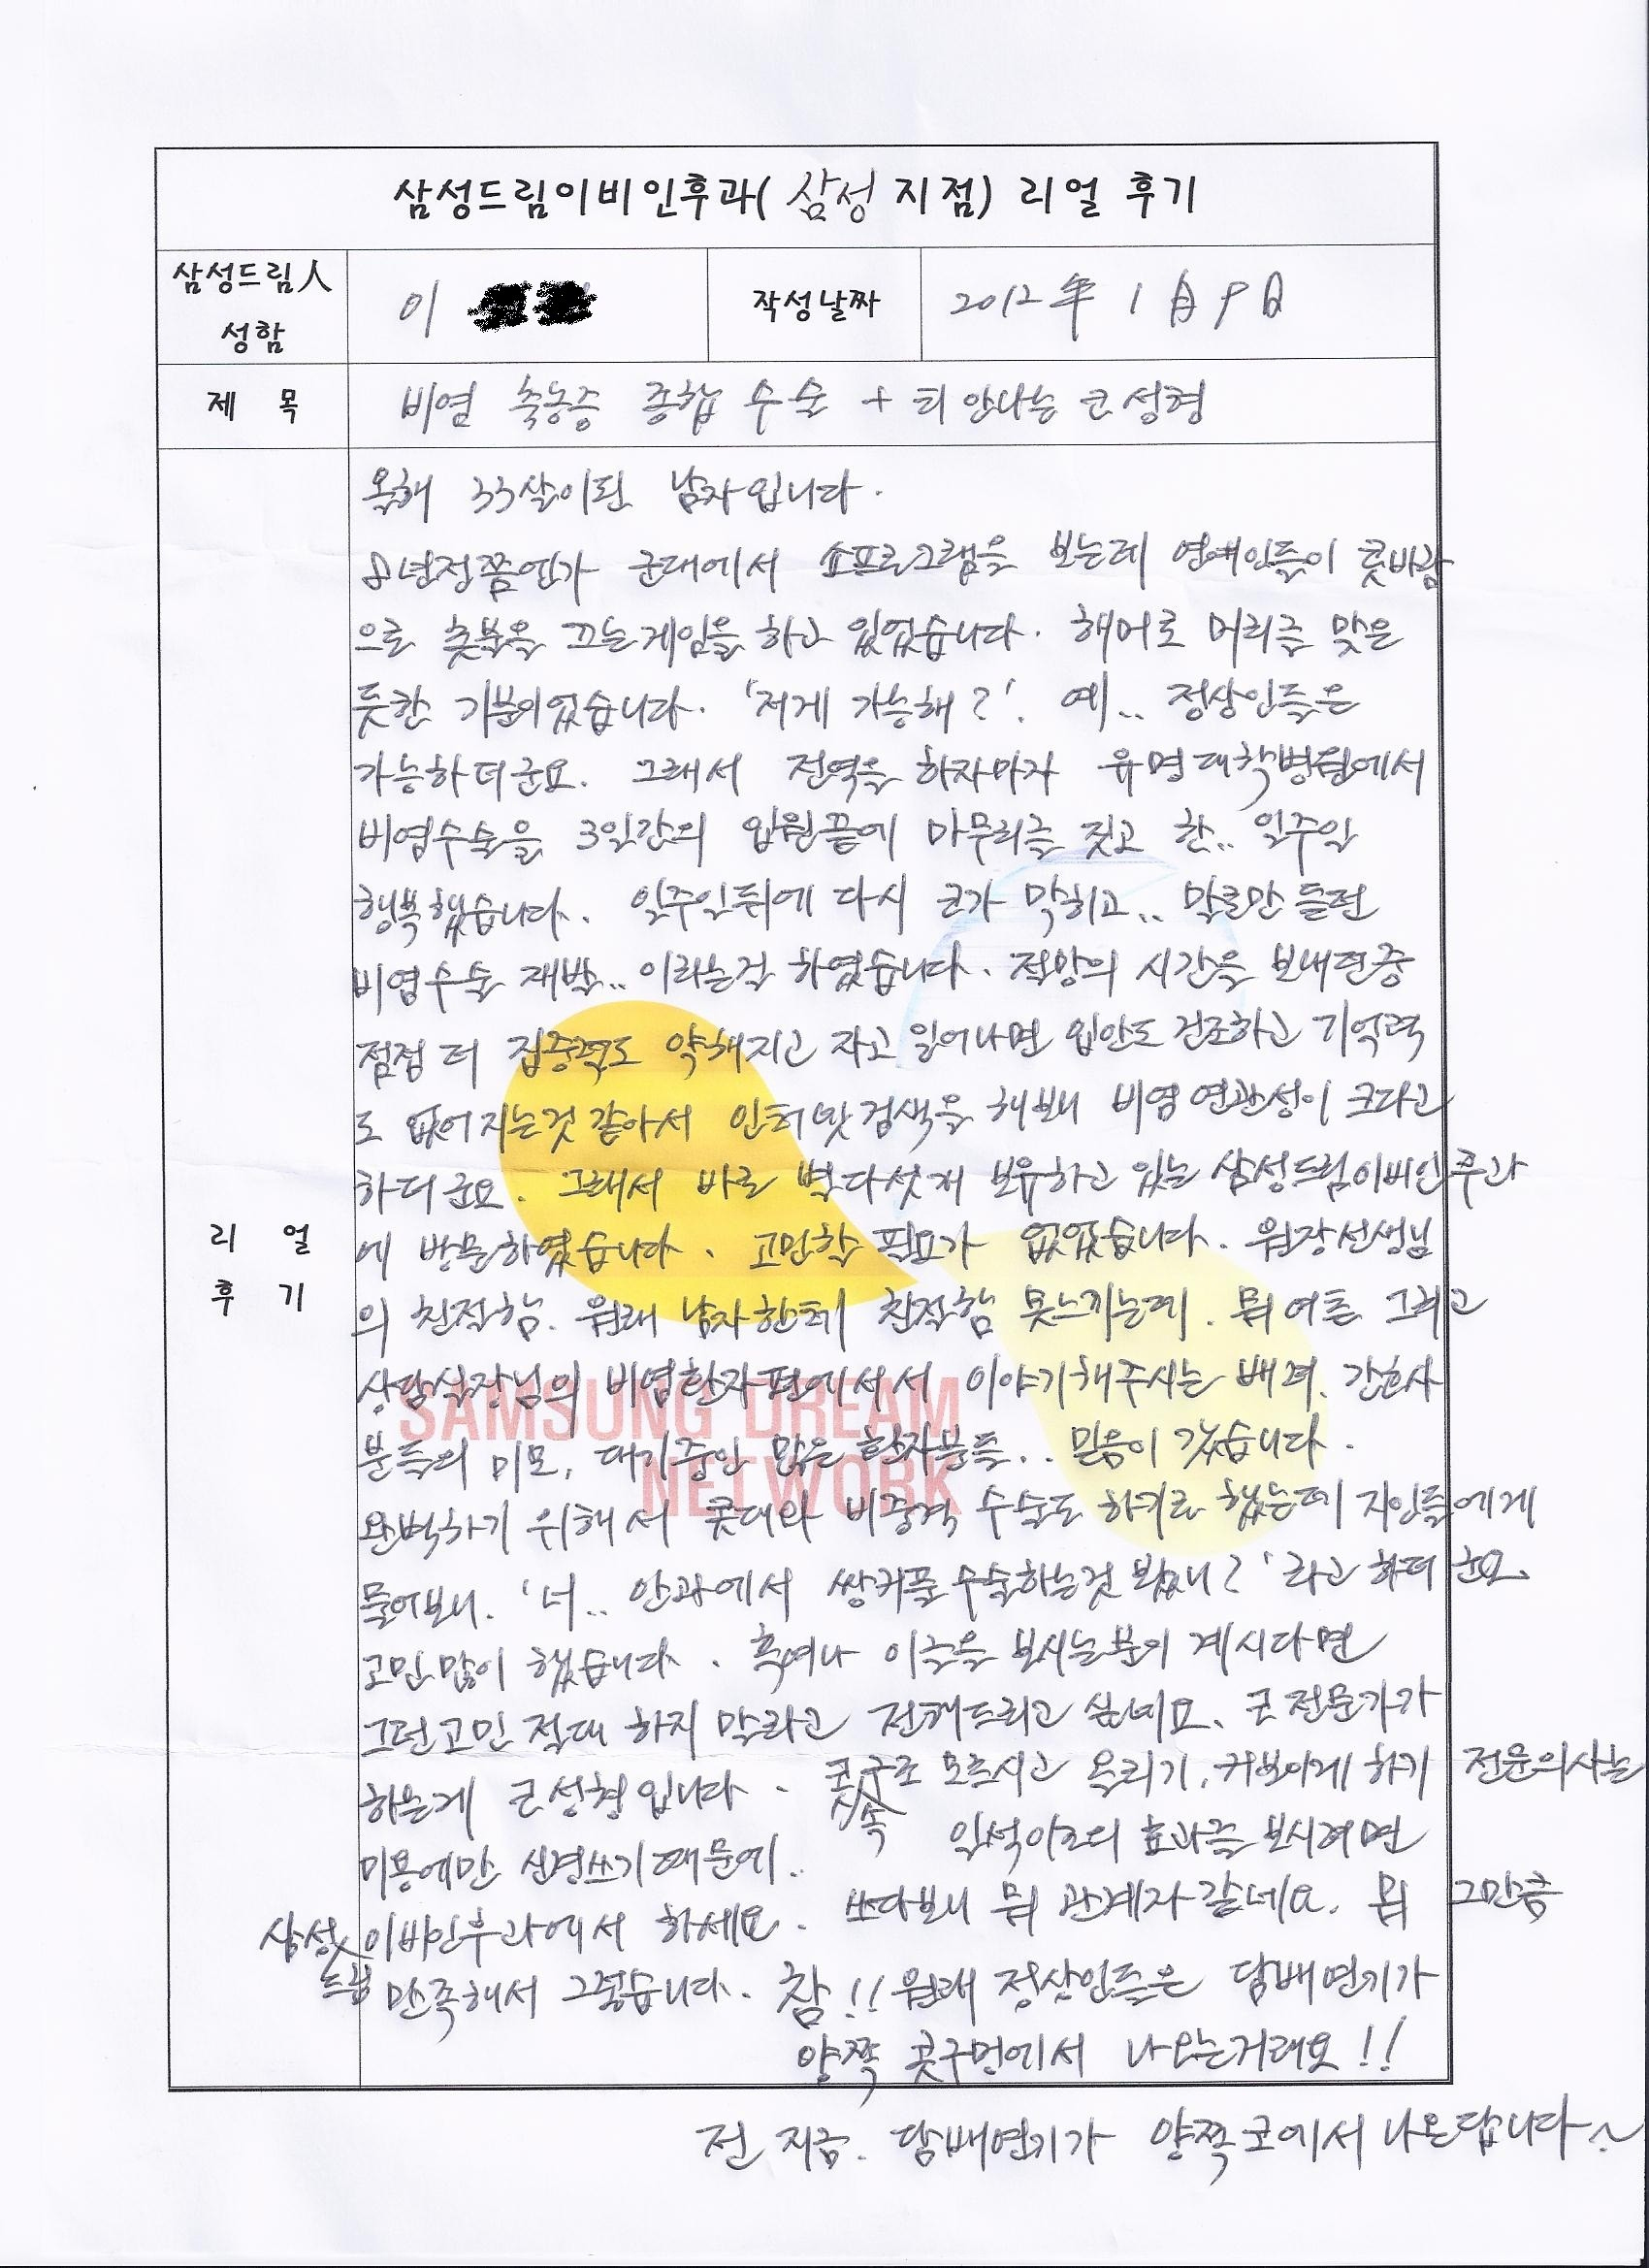 삼성드림이비인후과( 삼성 지점) 리얼 후기
삼성드림人
성함
이
작성날짜
2012年 1月 9日
제 목
비염 축농증 종합 수술 + 티 안나는 코성형
올해 33살이된 남자입니다.
8년전쯤인가 군대에서 쇼프로그램을 보는데 연예인들이 콧바람
으로 촛불을 끄는게임을 하고 있었습니다. 해머로 머리를 맞은
듯한 기분이었습니다. '저게 가능해?'. 예.. 정상인들은
가능하더군요. 그래서 전역을 하자마자 유명대학병원에서
비염수술을 3일간의 입원끝에 마무리를 짓고 한.. 일주일
행복했습니다. 일주일뒤에 다시 코가 막히고.. 말로만 듣던
비염수술 재발.. 이라는걸 하였습니다. 절망의 시간을 보내던중
점점 더 집중력도 약해지고 자고 일어나면 입안도 건조하고 기억력
도 없어지는것 같아서 인터넷검색을 해보니 비염 연관성이 크다고
하더군요. 그래서 바로 별다섯개 보유하고 있는 삼성드림이비인후과
에 방문하였습니다. 고민할 필요가 없었습니다. 원장선생님
의 친절함. 원래 남자한테 친절함 못느끼는데. 뭐 여튼 그리고
상담실장님의 비염환자편에서서 이야기해주시는 배려. 간호사
분들의 미모, 대기중인 많은 환자분들.. 믿음이 갔습니다.
완벽하기 위해서 콧대와 비중격 수술도 하기로 했는데 지인들에게
물어보니. '너.. 안과에서 쌍커풀수술하는것 봤니?'라고 하더군요.
고민많이 했습니다. 혹여나 이글을 보시는분이 계시다면
그런고민 절대 하지 말라고 전해드리고 싶네요. 코 전문가가
하는게 코성형입니다. 코구조 모르시고 올리기, 커보이게 하기 전문의사는
속
미용에만 신경쓰기때문에.. 일석이조의 효과를 보시려면
삼성 이비인후과에서 하세요. 쓰다보니 뭐 관계자 같네요. 뭐 그만큼
드림
만족해서 그렇습니다. 참!! 원래 정상인들은 담배연기가
양쪽 콧구멍에서 나오는거래요!!
전 지금. 담배연기가 양쪽코에서 나온답니다~
리 얼
후 기
SAMSUNG DREAM
NETWORK